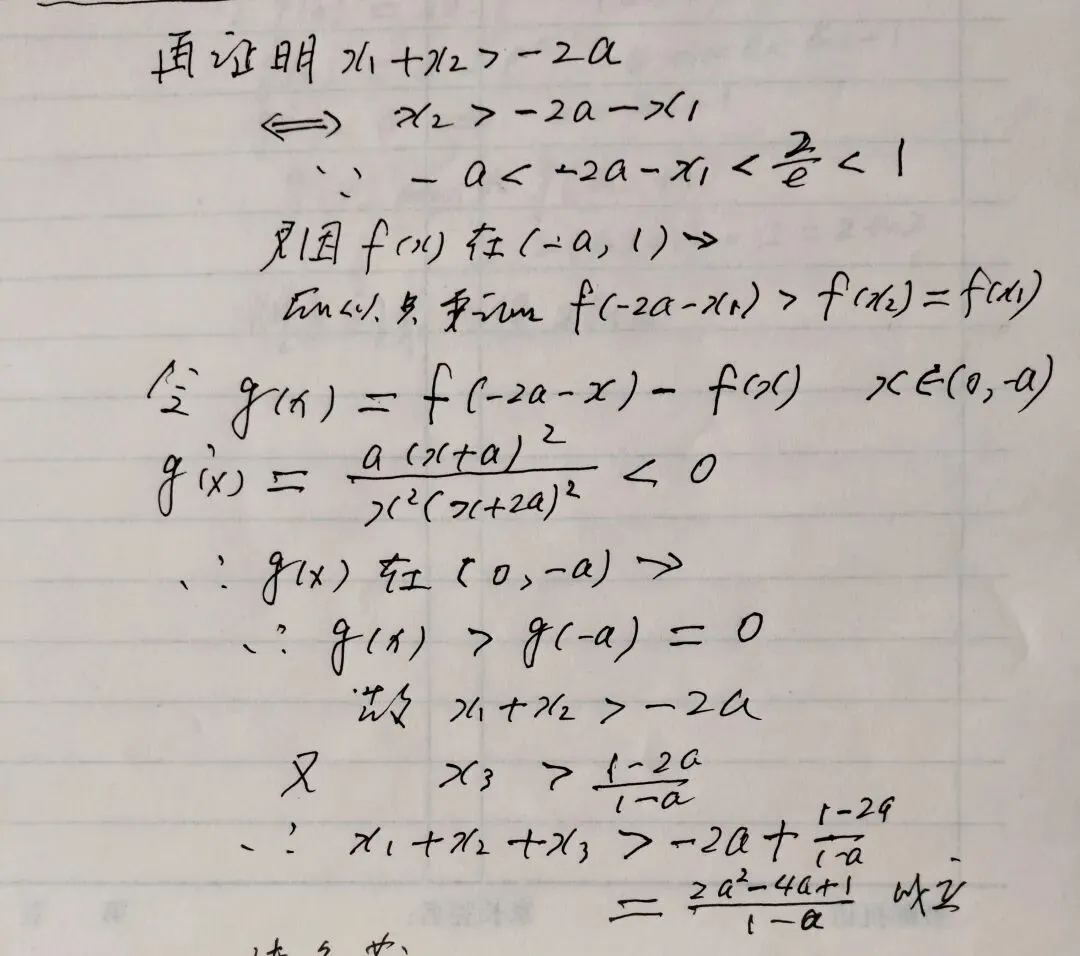 再证明 x₁+x₂>-2a
⟺ x₂>-2a-x₁
∵ -a<-2a-x₁<2/e<1
又因 f(x) 在 (-a, 1) ↘
所以只要证 f(-2a-x₁)>f(x₂)=f(x₁)
令 g(x) = f(-2a-x)-f(x) x∈(0,-a)
g'(x) = a(x+a)²/x²(x+2a)² < 0
∴ g(x) 在 (0,-a) ↘
∴ g(x) > g(-a) = 0
故 x₁+x₂>-2a
又 x₃ > (1-2a)/(1-a)
∴ x₁+x₂+x₃>-2a+(1-2a)/(1-a)
= (2a²-4a+1)/(1-a) 成立